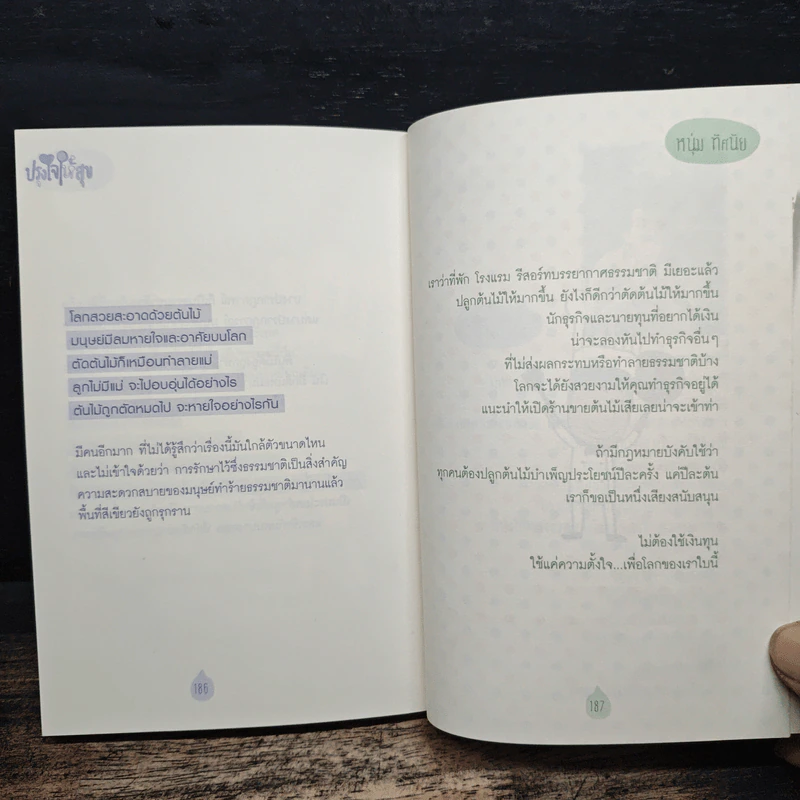 ปรุงใจให้สุข
โลกสวยสะอาดด้วยต้นไม้
มนุษย์มีลมหายใจและอาศัยบนโลก
ตัดต้นไม้ก็เหมือนทำลายแม่
ลูกไม่มีแม่ จะไปอบอุ่นได้อย่างไร
ต้นไม้ถูกตัดหมดไป จะหายใจอย่างไรกัน
มีคนอีกมาก ที่ไม่ได้รู้สึกว่าเรื่องนี้มันใกล้ตัวขนาดไหน
และไม่เข้าใจด้วยว่า การรักษาไว้ซึ่งธรรมชาติเป็นสิ่งสำคัญ
ความสะดวกสบายของมนุษย์ทำร้ายธรรมชาติมานานแล้ว
พื้นที่สีเขียวยังถูกรุกราน
186
หนุ่ม ทิศนัย
เราว่าที่พัก โรงแรม รีสอร์ทบรรยากาศธรรมชาติ มีเยอะแล้ว
ปลูกต้นไม้ให้มากขึ้น ยังไงก็ดีกว่าตัดต้นไม้ให้มากขึ้น
นักธุรกิจและนายทุนที่อยากได้เงิน
น่าจะลองหันไปทำธุรกิจอื่นๆ
ที่ไม่ส่งผลกระทบหรือทำลายธรรมชาติบ้าง
โลกจะได้ยังสวยงามให้คุณทำธุรกิจอยู่ได้
แนะนำให้เปิดร้านขายต้นไม้เสียเลยน่าจะเข้าท่า
ถ้ามีกฎหมายบังคับใช้ว่า
ทุกคนต้องปลูกต้นไม้บำเพ็ญประโยชน์ปีละครั้ง แค่ปีละต้น
เราก็ขอเป็นหนึ่งเสียงสนับสนุน
ไม่ต้องใช้เงินทุน
ใช้แค่ความตั้งใจ...เพื่อโลกของเราใบนี้
187